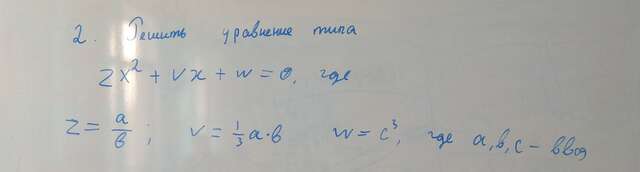 2. Решить уравнение типа
zx² + vx + w = 0, где
z = a/b ; v = 1/3 a·b w = c³, где a, b, c – ввод